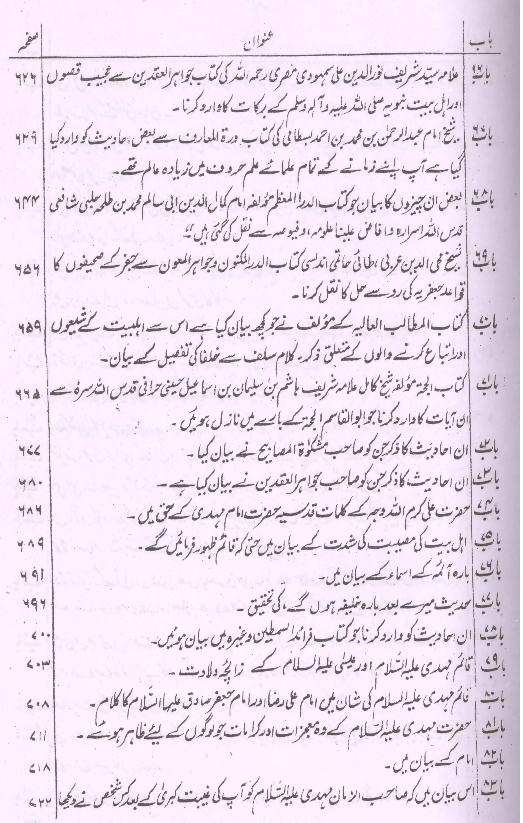 باب عنوان صفحہ
باب۶۶ علامہ سید شریف نور الدین علی سمہودی مصری رحمہ اللہ کی کتاب جواہر العقدین سے عجیب قصوں ۶۲۶
اور اہل بیت نبویہ صلی اللہ علیہ وآلہ وسلم کے برکات کا وارد کرنا۔
باب۶۷ شیخ امام عبد الرحمٰن بن محمد بن احمد بسطامی کی کتاب درۃ المعارف سے بعض احادیث کو وارد کیا ۶۳۹
گیا ہے آپ اپنے زمانے کے تمام علمائے علم حروف میں زیادہ عالم تھے۔
باب۶۸ بعض ان چیزوں کا بیان جو کتاب الدر المعظم مؤلفہ امام کمال الدین ابی سالم محمد بن طلحہ حلبی شافعی ۶۴۴
قدس اللہ اسرارہ وافاض علینا علومہ وفیوضہ سے نقل کی گئی ہیں"
باب۶۹ شیخ محی الدین عربی الطائی حاتمی اندلسی کتاب الدر المکنون وجواہر المصون سے جفر کے صحیفوں کا ۶۵۶
قواعد جعفریہ کی رو سے حل کا نقل کرنا۔
باب۷۰ کتاب المطالب العالیہ کے مؤلف نے جو کچھ بیان کیا ہے اس سے اہلبیت کے شیعوں ۶۵۹
اور اتباع کرنے والوں کے متعلق ذکر۔ کلام سلف سے خلفا کی تفصیل کے بیان۔
باب۷۱ کتاب الحجۃ مؤلفہ شیخ کامل علامہ شریف ہاشم بن سلیمان بن اسماعیل حسینی حرانی قدس اللہ سرہ سے ۶۶۵
ان آیات کا وارد کرنا جو ابو القاسم الحجۃ کے بارے میں نازل ہوئیں۔
باب۷۲ ان احادیث کا ذکر جن کو صاحب مشکوٰۃ المصابیح نے بیان کیا۔ ۶۷۷
باب۷۳ ان احادیث کا ذکر جن کو صاحب جواہر العقدین نے بیان کیا ہے۔ ۶۸۰
باب۷۴ حضرت علی کرم اللہ وجہہ کے کلمات قدسیہ حضرت امام مہدی کے حق میں۔ ۶۸۶
باب۷۵ اہل بیت کی مصیبت کی شدت کے بیان میں حتیٰ کہ قائم ظہور فرمائیں گے۔ ۶۸۹
باب۷۶ بارہ آئمہ کے اسماء کے بیان میں۔ ۶۹۱
باب۷۷ حدیث میرے بعد بارہ خلیفہ ہوں گے، کی تحقیق۔ ۶۹۶
باب۷۸ ان احادیث کو وارد کرنا جو کتاب فرائد السمطین وغیرہ میں بیان ہوئیں۔ ۷۰۰
باب۷۹ قائم مہدی علیہ السلام اور عیسیٰ علیہ السلام کے زائچہ ولادت۔ ۷۰۳
باب۸۰ قائم مہدی علیہ السلام کی شان میں امام علی رضا اور امام جعفر صادق علیہما السلام کا کلام۔ ۷۰۸
باب۸۱ حضرت مہدی علیہ السلام کے وہ معجزات اور کرامات جو لوگوں کے لیئے ظاہر ہوئے۔ ۷۱۱
باب۸۲ امام کے بیان میں۔ ۷۱۸
باب۸۳ اس بیان میں کہ صاحب الزمان مہدی علیہ السلام کو آپ کی غیبت کبریٰ کے بعد کس شخص نے دیکھا ۷۲۲